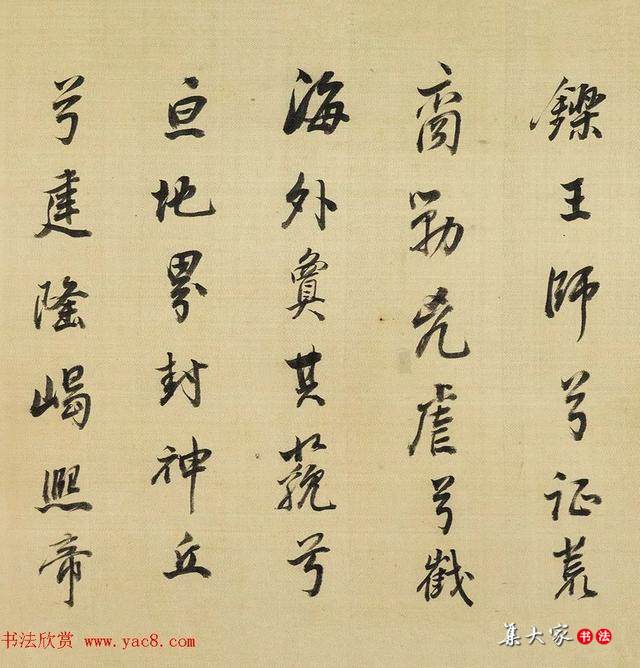 鑠王師兮征荒
裔勦兇虐兮截
海外夐其藐兮
亘地界封神丘
兮建隆嵑熙帝
书法欣赏 www.yac8.com
集大家书法